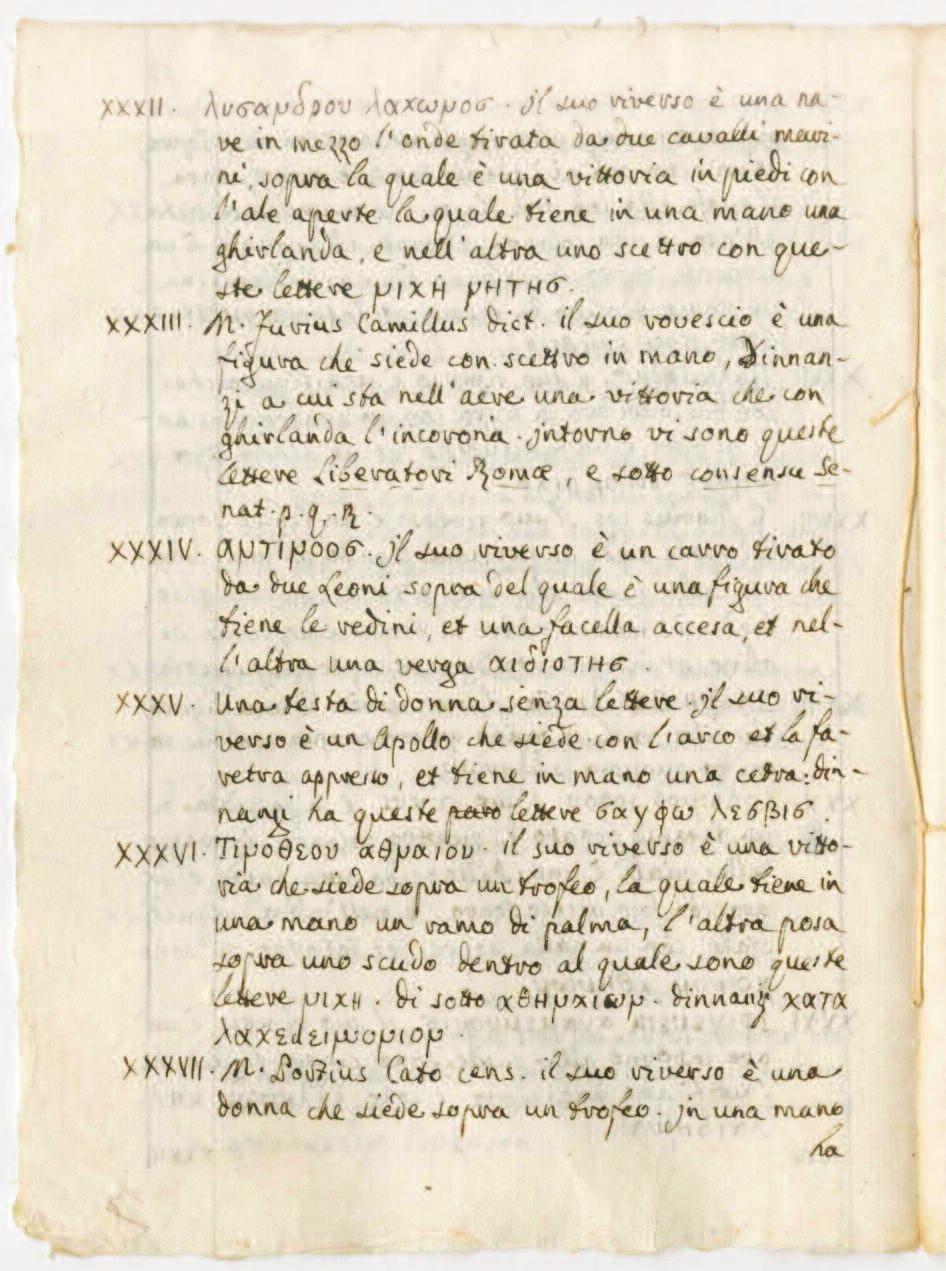 XXXII. λυσαμδρου λαχωμοσ. jl suo riverso è una na-
ve in mezzo l'onde tirata da due cavalli mari-
ni, sopra la quale è una vittoria in piedi con
l'ale aperte la quale tiene in una mano una
ghirlanda, e nell'altra uno scettro con que-
ste lettere μιχΗ μΗΤΗσ.
XXXIII. M. Furius Camillus dict. il suo rovescio è una
figura che siede con scettro in mano, Dinnan-
zi a cui sta nell'aere una vittoria che con
ghirlanda l'incorona. jntorno vi sono queste
lettere Liberatori Romæ, e sotto consensu Se-
nat. p. q. R.
XXXIV. αμΤΙμοοσ. jl suo riverso è un carro tirato
da due Leoni sopra del quale è una figura che
tiene le redini, et una facella accesa, et nel-
l'altra una verga αιδιοΤΗσ.
XXXV. Una testa di donna senza lettere. jl suo ri-
verso è un Apollo che siede con l'arco et la fa-
retra appresso, et tiene in mano una cetra: din-
nanzi ha queste lettere σαγφω λεσβισ.
XXXVI. Τιμοθεου αθμαιου. il suo riverso è una vitto-
ria che siede sopra un trofeo, la quale tiene in
una mano un ramo di palma, l'altra posa
sopra uno scudo dentro al quale sono queste
lettere μιχΗ. di sotto αθΗμχιωμ. dinnanzi χατα
λαχεdειμομιομ.
XXXVII. M. Portius Cato cens. il suo riverso è una
donna che siede sopra un trofeo. jn una mano
ha